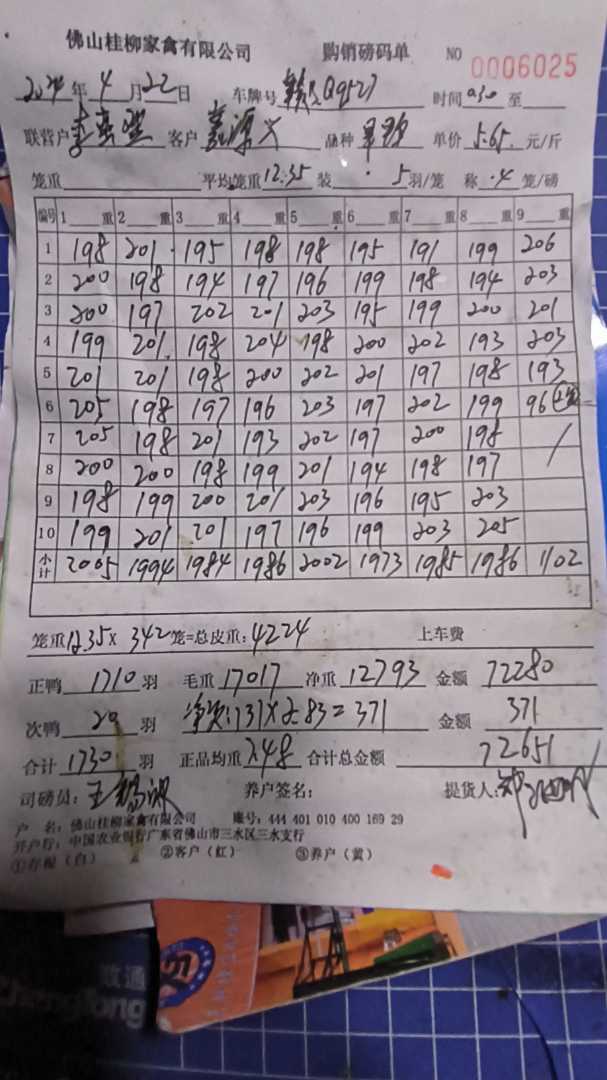 佛山桂柳家禽有限公司 购销磅码单 NO 0006025
2024年 4 月 22 日 车牌号 时间 至
联营户 客户 品种 单价 5.65 元/斤
笼重 平均笼重 12.35 装 5 羽/笼 称 4 笼/磅
编号 1 重 2 重 3 重 4 重 5 重 6 重 7 重 8 重 9 重
1 198 201 195 198 198 195 191 199 206
2 200 198 194 197 196 199 198 194 203
3 200 197 202 201 203 195 199 200 201
4 199 201 198 204 198 200 202 193 203
5 201 201 198 200 202 201 197 198 193
6 205 198 197 196 203 197 202 199 96
7 205 198 201 193 202 197 200 198
8 200 200 198 199 201 194 198 197
9 198 199 200 201 203 196 195 203
10 199 201 201 197 196 199 203 205
小计 2005 1994 1984 1986 2002 1973 1985 1986 1102
笼重 12.35 × 342 笼=总皮重: 4224 上车费
正鸭 1710 羽 毛重 17017 净重 12793 金额 72280
次鸭 20 羽 净次:131×2.83=371 金额 371
合计 1730 羽 正品均重 7.48 合计总金额 72651
司磅员: 养户签名: 提货人:
户 名: 佛山桂柳家禽有限公司 账号: 444 401 010 400 169 29
开户行: 中国农业银行广东省佛山市三水区三水支行
①存根(白) ②客户(红) ③养户(黄)
致通
ZhengTong